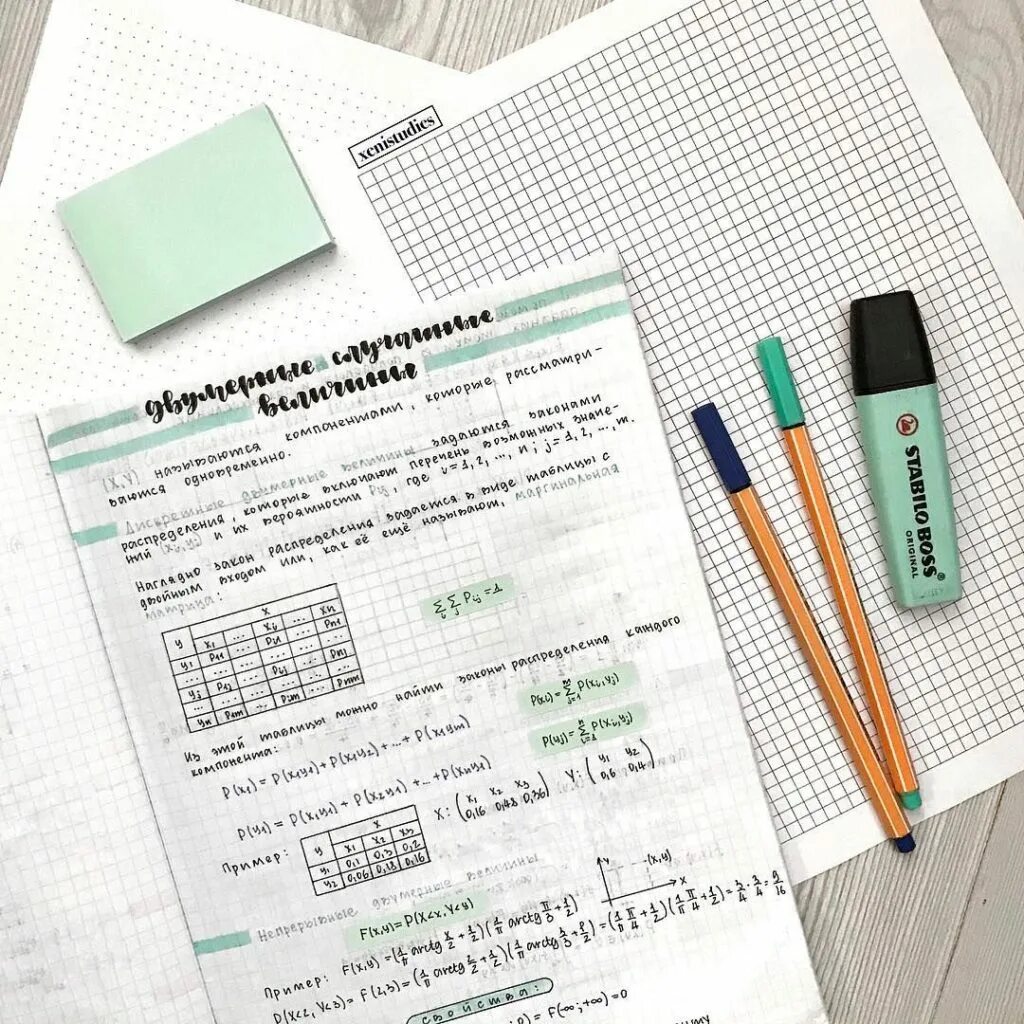 xenistudies
двумерные случайные
величины
(X,Y) называются компонентами, которые рассматри-
ваются одновременно.
Дискретные двумерные величины задаются законами
распределения, которые включают перечень возможных значе-
ний (xᵢ,yⱼ) и их вероятности Pᵢⱼ, где i=1,2,...,n; j=1,2,...,m.
Наглядно закон распределения задается в виде таблицы с
двойным входом или, как её ещё называют, маргинальная
матрица:
X
y x₁ ... xᵢ ... xₙ
y₁ P₁₁ ... Pᵢ₁ ... Pₙ₁
... ... ... ... ... ...
yⱼ P₁ⱼ ... Pᵢⱼ ... Pₙⱼ
... ... ... ... ... ...
yₘ P₁ₘ ... Pᵢₘ ... Pₙₘ
∑ᵢ ∑ⱼ Pᵢⱼ = 1
Из этой таблицы можно найти законы распределения каждого
компонента:
P(xᵢ) = ∑ P(xᵢ,yⱼ)
P(yⱼ) = ∑ P(xᵢ,yⱼ)
P(x₁) = P(x₁y₁) + P(x₁y₂) + ... + P(x₁yₘ)
P(y₁) = P(x₁y₁) + P(x₂y₁) + ... + P(xₙy₁)
Пример:
X
y x₁ x₂ x₃
y₁ 0,1 0,3 0,2
y₂ 0,06 0,18 0,16
X: (x₁ x₂ x₃
0,16 0,48 0,36)
Y: (y₁ y₂
0,6 0,4)
Непрерывные двумерные величины
F(x,y) = P(X<x, Y<y)
y
(x,y)
x
Пример: F(x,y) = (1/π arctg x/2 + 1/2)(1/π arctg y/3 + 1/2)
P(X<2, Y<3) = F(2,3) = (1/π arctg 2/2 + 1/2)(1/π arctg 3/3 + 1/2) = (1/π π/4 + 1/2)(1/π π/4 + 1/2) = 3/4 · 3/4 = 9/16
свойства:
F(-∞; +∞) = 0
STABILO BOSS®
ORIGINAL